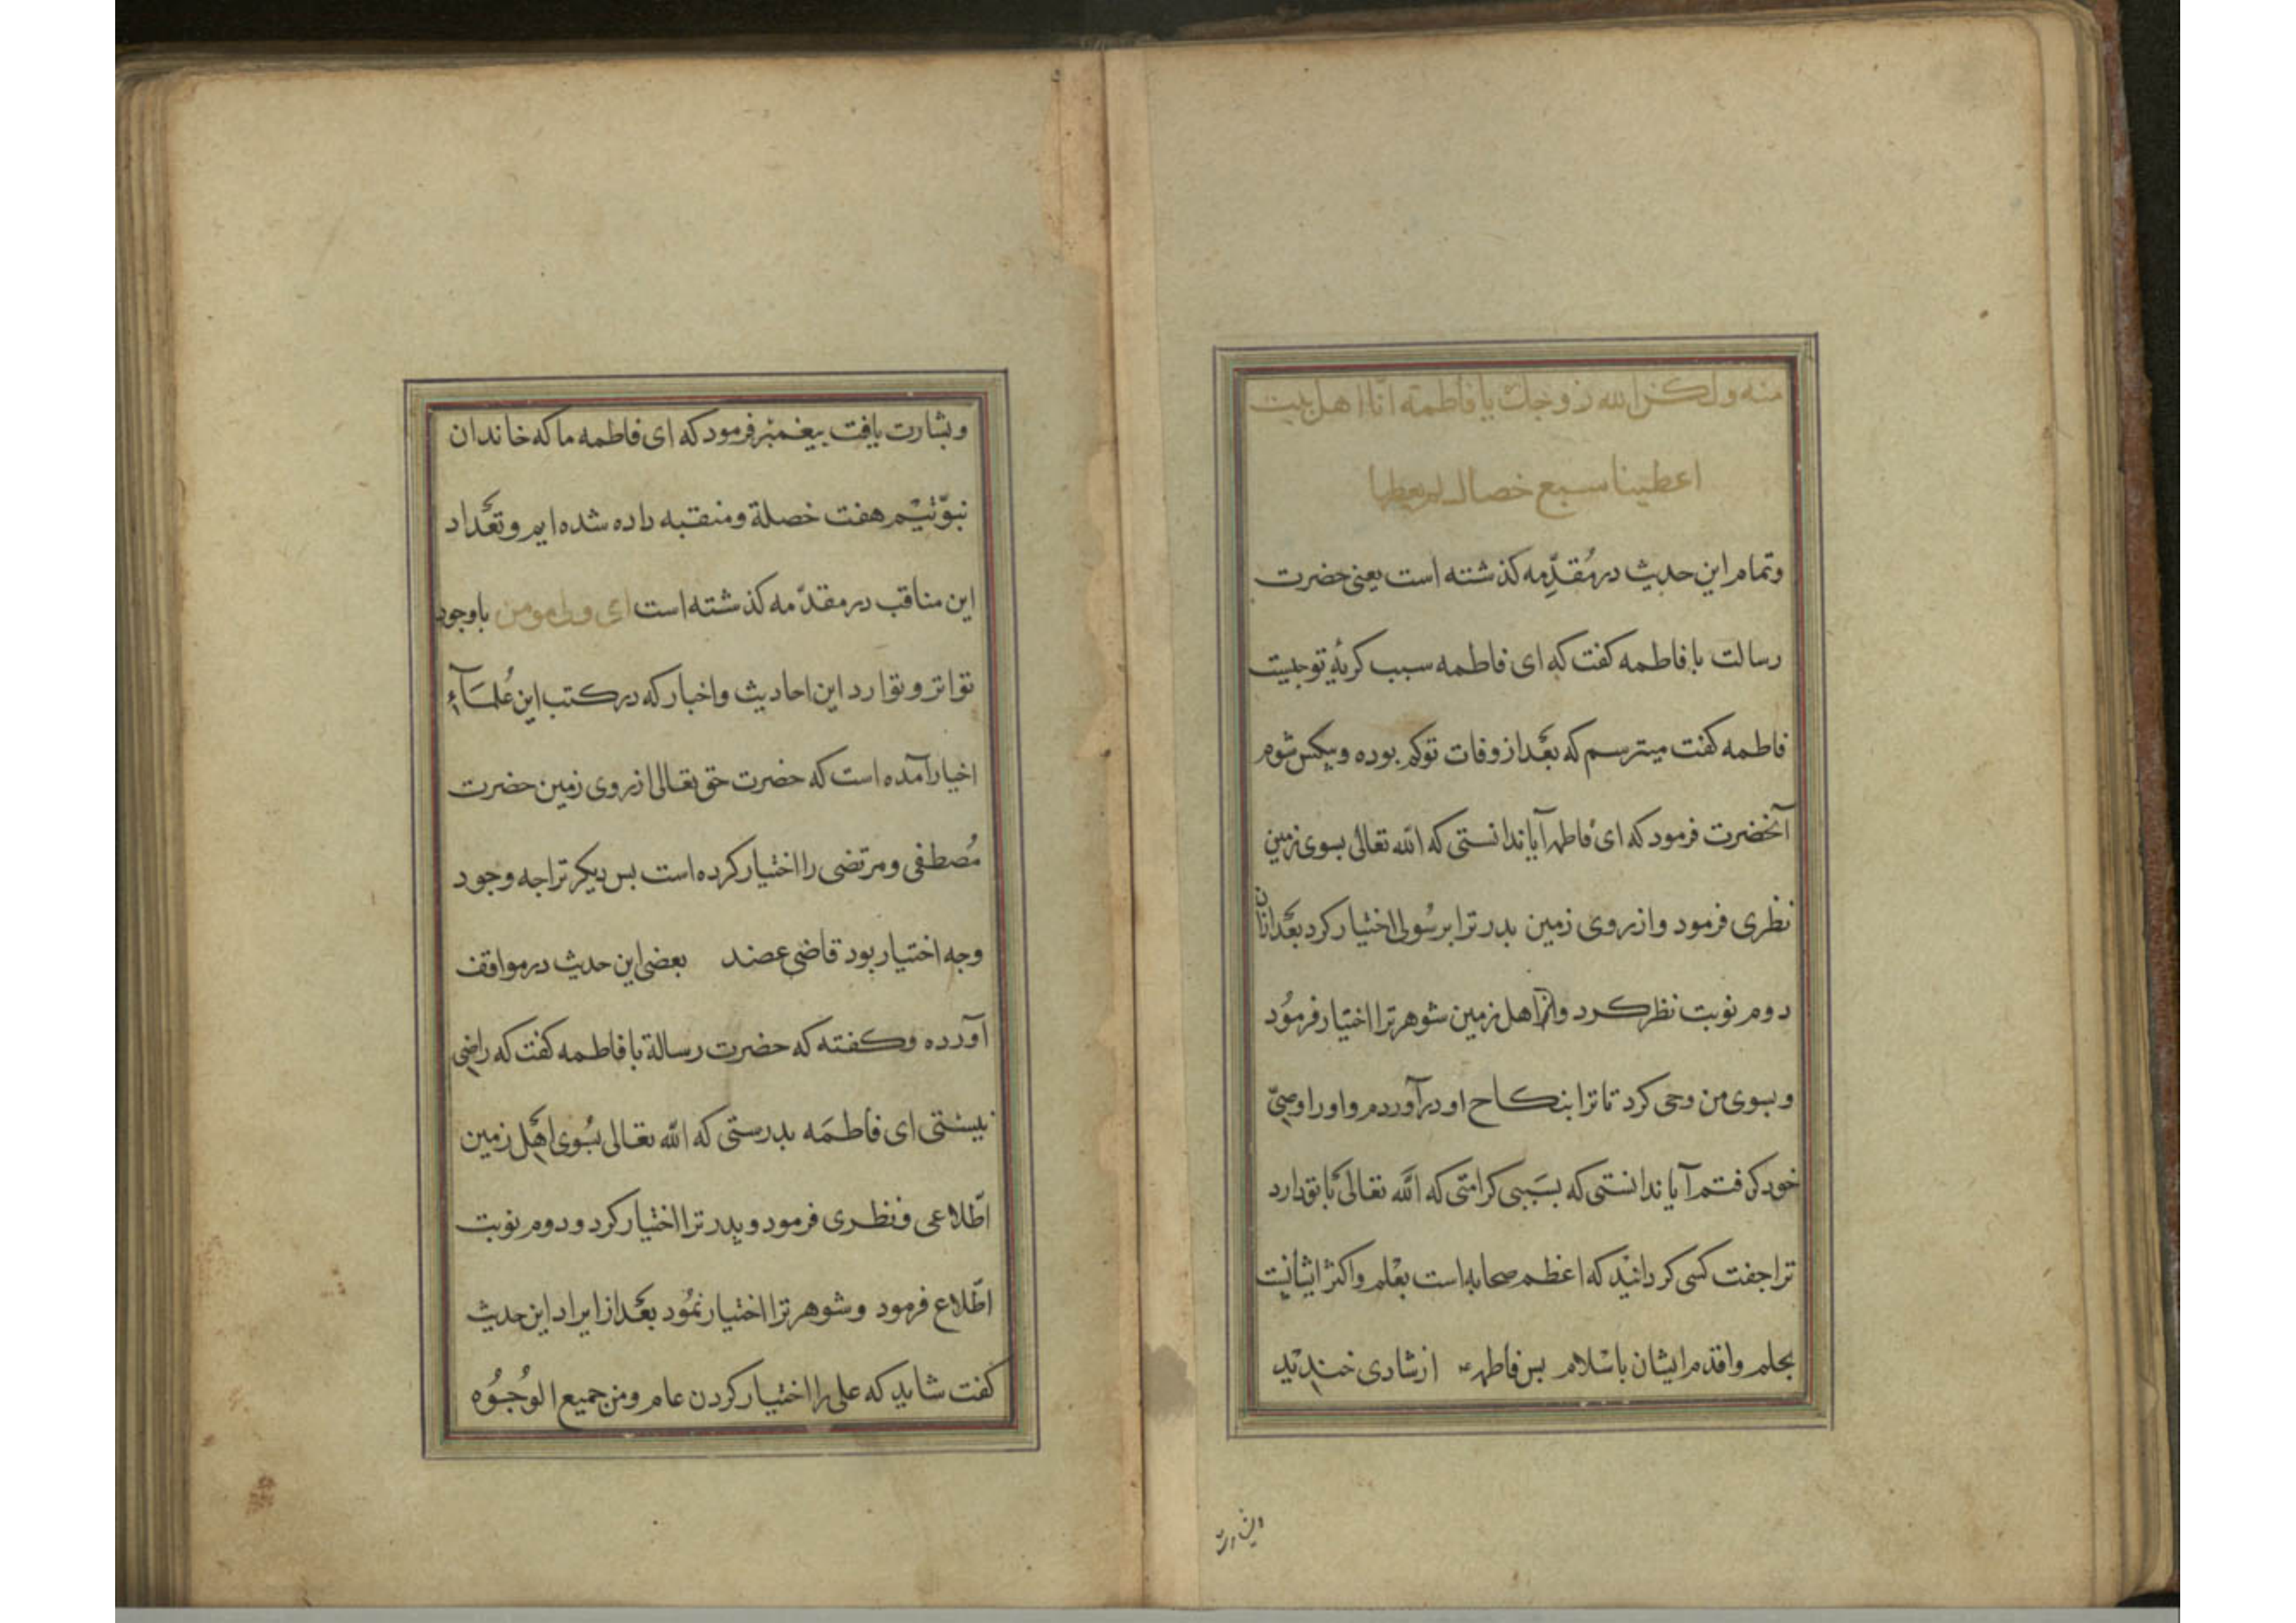 منه ولكن الله زوجك يا فاطمة انا اهل بيت
اعطينا سبع خصال لم يعطها
وتمام این حدیث در مُقدّمه كذشته است یعنی حضرت
رسالت با فاطمه كفت كه ای فاطمه سبب كریۀ تو جیست
فاطمه كفت میترسم كه بعَد از وفات تو كم بوده و بیكس شوم
آنحضرت فرمود كه ای فاطمه آیا ندانستی كه الله تعالی بسوی زمین
نظری فرمود و از روی زمین بدر ترا برسُولی اختیار كرد بعَد ازان
دوم نوبت نظر كرد و از اهل زمین شوهر ترا اختیار فرموُد
و بسوی من وحی كرد تا ترا بنكاح او درآوردم و او را وصیّ
خود كرفتم آیا ندانستی كه بسَببی كرامتی كه الله تعالی با تو دارد
ترا جفت كسی كردانید كه اعظم صحابه است بعْلم و اكثر ایشانست
بحلم و اقدم ایشان باسْلام بس فاطمه از شادی خندید
وبشارت
و بشارت یافت بیغمبر فرمود كه ای فاطمه ما كه خاندان
نبوّتیْم هفت خصلة و منقبه داده شده ایم و تعَداد
این مناقب در مقدّمه كذشته است ای ولی مومن باوجود
تواتر و توارد این احادیث و اخبار كه در كتب این عُلمَآءِ
اخیار آمده است كه حضرت حق تعالی از روی زمین حضرت
مُصطفی و مرتضی را اختیار كرده است بس دیكر ترا جه وجود
وجه اختیار بود قاضی عضد بعضی این حدیث در مواقف
آورده و كفته كه حضرت رسالة با فاطمه كفت كه راضی
نیستی ای فاطمَه بدرستی كه الله تعالی بسُوی اهَل زمین
اطّلاعی و نظری فرمود و بدر ترا اختیار كرد و دوم نوبت
اطّلاع فرمود و شوهر ترا اختیار نمُود بعَد از ایراد این حدیث
كفت شاید كه علی را اختیار كردن عام و من جمیع الوُجوُه